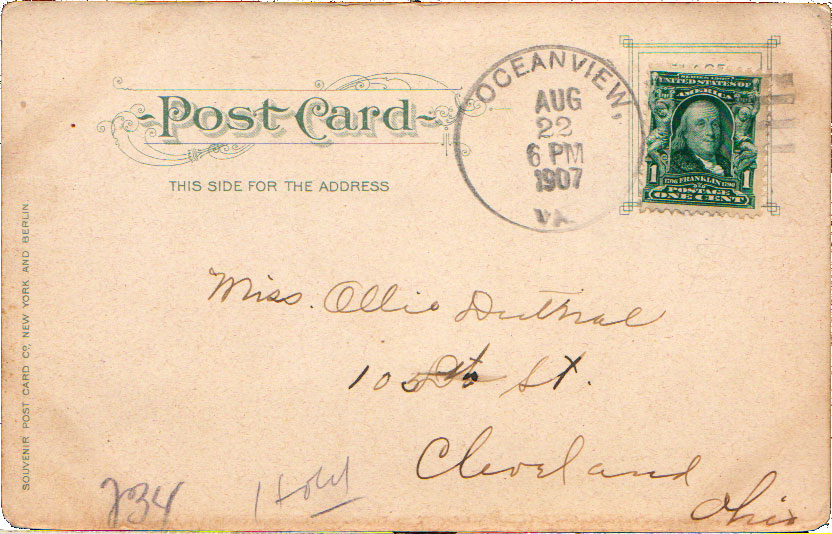 Post Card
THIS SIDE FOR THE ADDRESS
OCEANVIEW,
AUG
22
6 PM
1907
VA.
UNITED STATES OF
AMERICA
1 FRANKLIN 1
POSTAGE
ONE CENT
Miss. Ollie
St.
Cleveland
Ohio
SOUVENIR POST CARD Co, NEW YORK AND BERLIN.
234